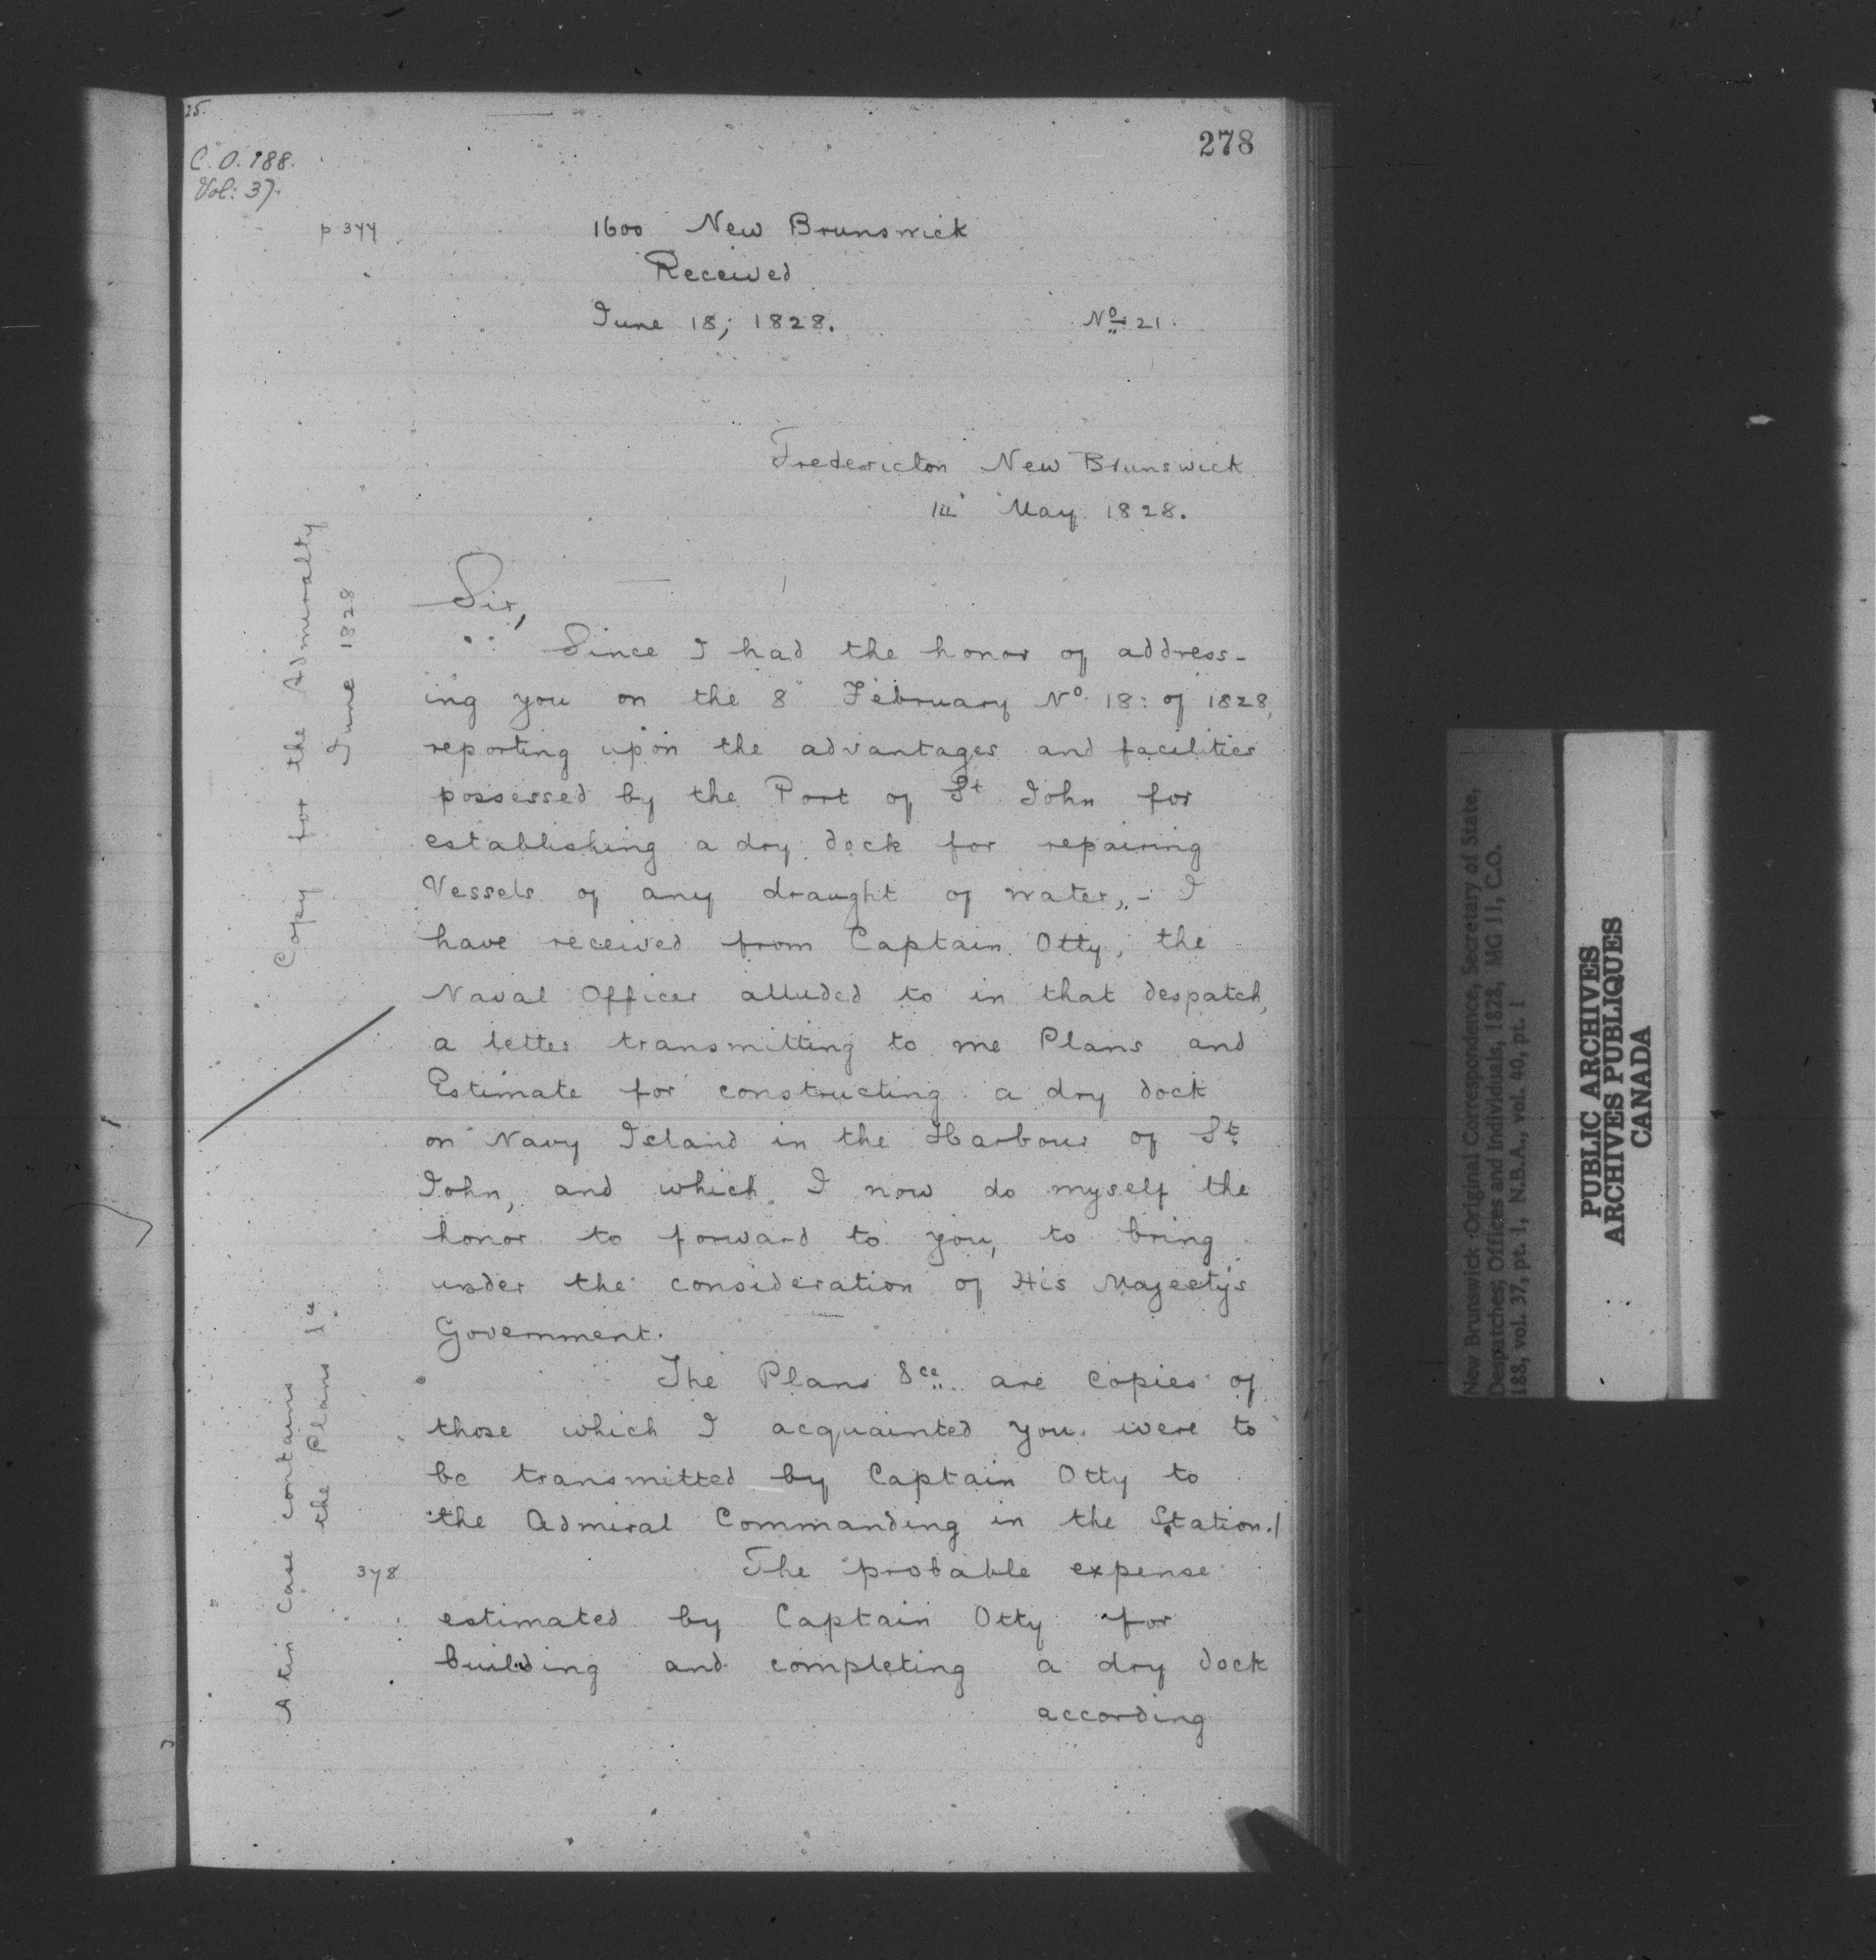 25.
278
C.O. 188.
Vol: 37.
p 377
1600 New Brunswick
Received
June 18, 1828.
No. 21.
Fredericton New Brunswick
May 1828.
Sir,
Since I had the honor of address-
ing you on the 8" February No. 18: of 1828,
reporting upon the advantages and facilities
possessed by the Port of St John for
establishing a dry dock for repairing
Vessels of any draught of water, - I
have received from Captain Otty, the
Naval Officer alluded to in that despatch,
a letter transmitting to me Plans and
Estimate for constructing a dry dock
on Navy Island in the Harbour of St.
John, and which I now do myself the
honor to forward to you, to bring
under the consideration of His Majesty's
Government.
The Plans &ce. are copies of
those which I acquainted you were to
be transmitted by Captain Otty to
the Admiral Commanding in the Station./
378
The probable expense
estimated by Captain Otty for
building and completing a dry dock
according
Copy for the Admiralty
June 1828
A tin case contains
the Plans
New Brunswick Original Correspondence, Secretary of State,
Despatches; Offices and Individuals, 1828, MG 11, C.O.
188, vol. 37, pt. 1, N.B.A., vol. 40, pt. 1
PUBLIC ARCHIVES
ARCHIVES PUBLIQUES
CANADA